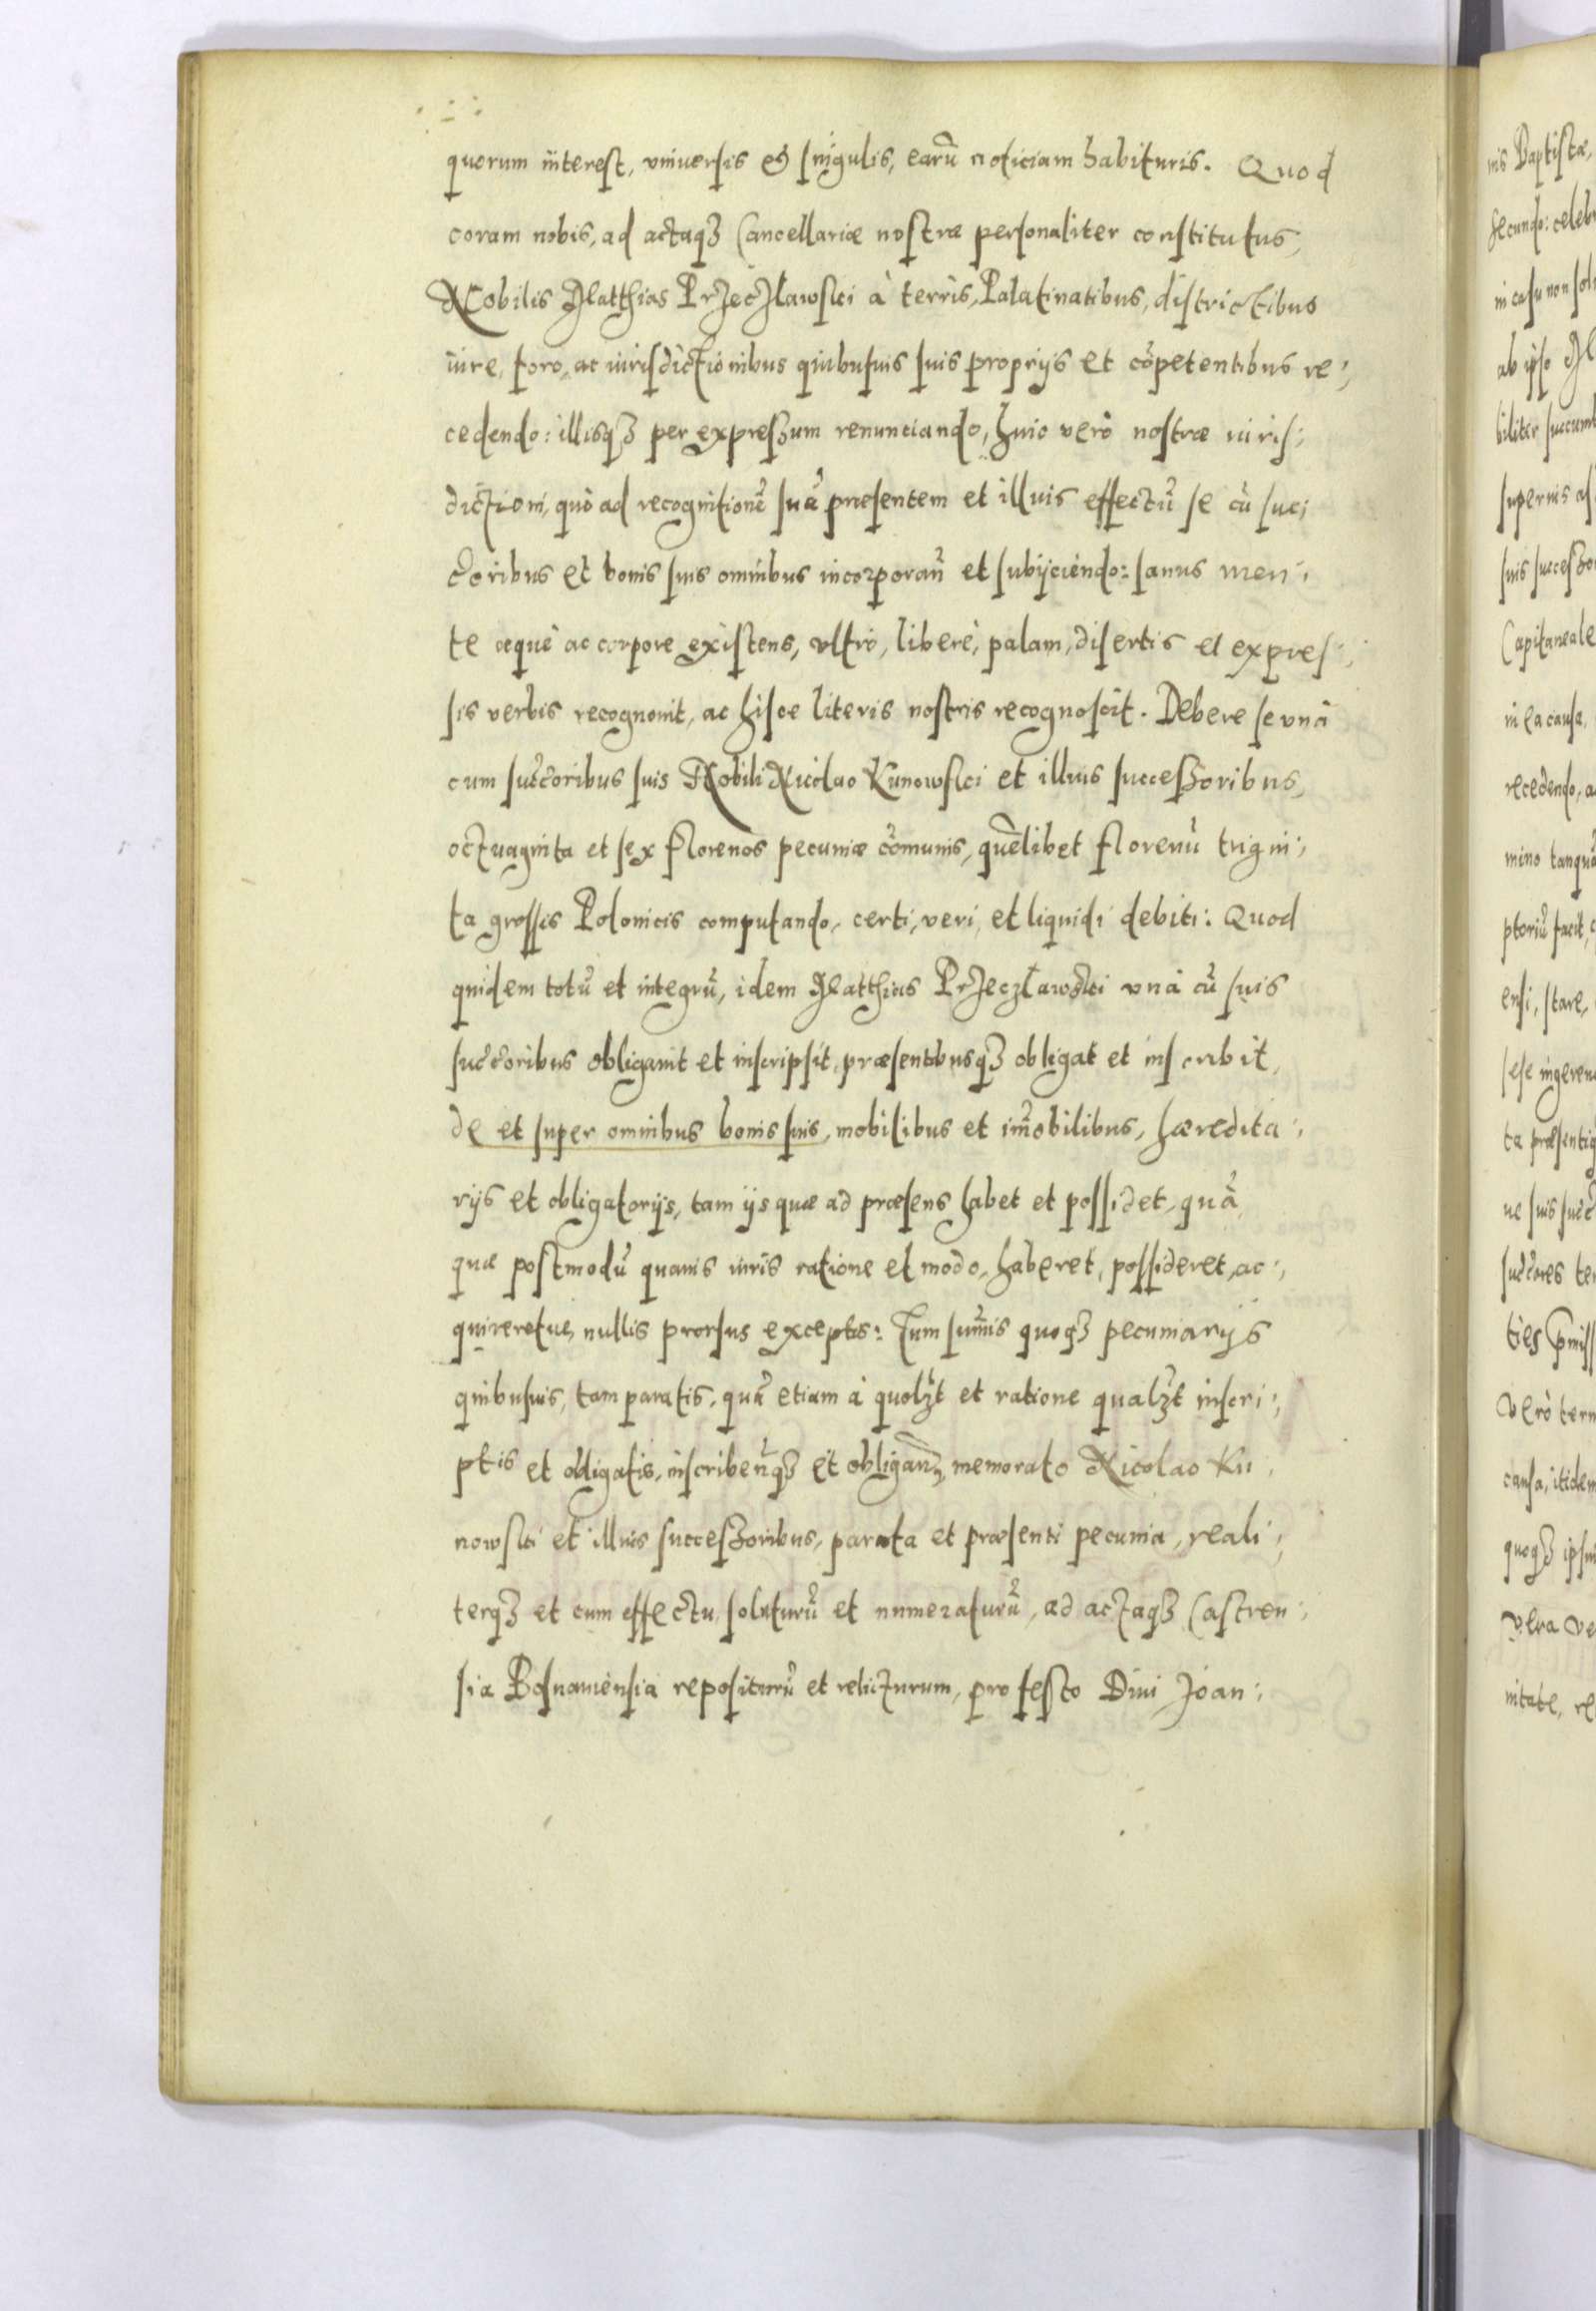 quorum interest, vniuersis et singulis, earũ noticiam habituris. Quod
coram nobis, ad actaqꝫ Cancellariæ nostræ personaliter constitutus,
Nobilis Matthias Przeczlawski à terris, Palatinatibus, districtibus
iure, foro, ac iurisdictionibus quibusuis suis proprijs et cõpetentibus re:,
cedendo: illisqꝫ per expressum renunciando, huic verò nostræ iuris:,
dictioni, quò ad recognitionẽ suã præsentem et illius effectũ se cũ suc:
c̃oribus et bonis suis omnibus incorporañ et subijciendo: sanus men:,
te æquè ac corpore existens, vltrò, liberè, palam, disertis et expres:,
sis verbis recognouit, ac hisce literis nostris recognoscit. Debere se vnà
cum suc̃c̃oribus suis Nobili Nicolao Kunowski et illius successoribus,
octuaginta et sex florenos pecuniæ cõmunis, quẽlibet florenũ trigin:,
ta grossis Polonicis computando, certi, veri, et liquidi debiti: Quod
quidem totũ et integrũ, idem Matthias Przeczławski vnà cũ suis
suc̃c̃oribus obligauit et inscripsit, præsentibusqꝫ obligat et inscribit,
de et super omnibus bonis suis, mobilibus et im̃obilibus, hæredita:,
rijs et obligatorijs, tam ijs quæ ad præsens habet et possidet, quã
quæ postmodũ quauis iuris ratione et modo, haberet, possideret, ac:,
quireretue, nullis prorsus exceptis: Tum sum̃is quoqꝫ pecuniarijs
quibusuis, tam paratis, quã etiam à quolꝫt et ratione qualꝫt inscri:,
ptis et obligatis, inscribeñqꝫ et obligañꝫ, memorato Nicolao Ku:,
nowski et illius successoribus, parata et præsenti pecunia, reali:,
terqꝫ et cum effectu, soluturũ et numeraturũ, ad actaqꝫ Castren:,
sia Posnaniensia repositurũ et relicturum, pro festo Diui Joan:,